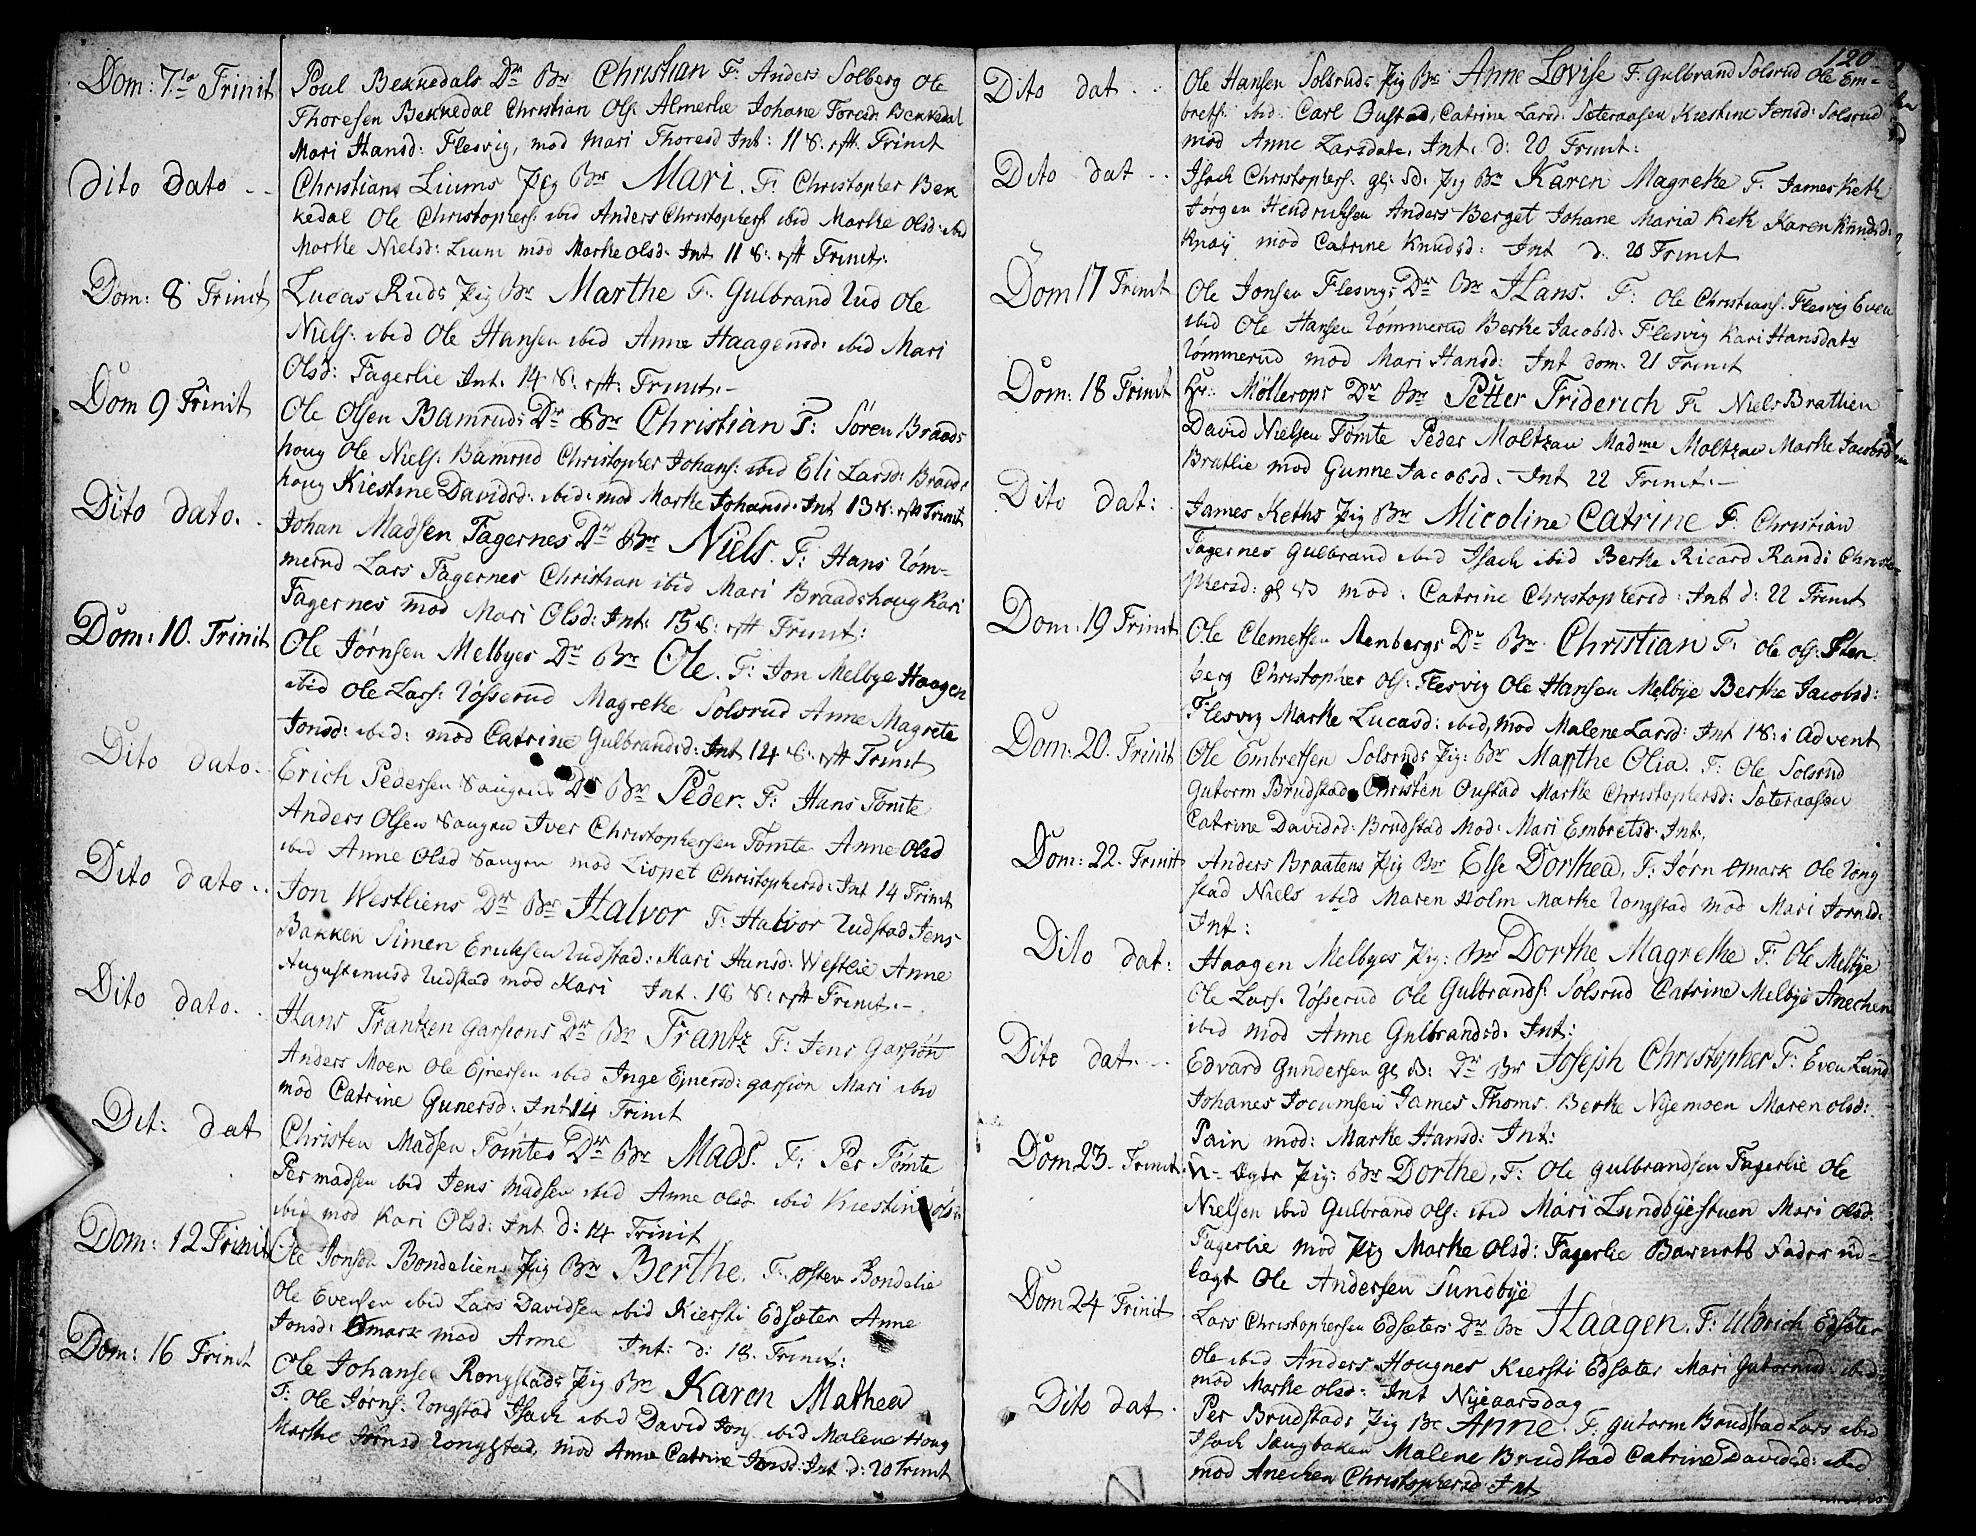 Dom: 7de Trinit
Poul Bekkedals Dr Br Christian F: Anders Solberg Ole
Thoresen Bekkedal Christian Ols: Almerlie Johane Toresd: Bekkedal
Mari Hansd: Flesvig, mod Mari Thoresd Int: 11 S: eftr Trinit
Dito Dato
Christians Liums Pig Br Mari. F: Christopher Bek
kedal Ole Christophers: ibid Anders Christophers: ibid Marthe Olsd: ibid
Marthe Nielsd: Lium mod Marthe Olsd: Int 11 S: eft Trinit:
Dom: 8 Trinit
Lucas Ruds Pig Br Marthe F: Gulbrand Rud Ole
Niels: ibid Ole Hansen ibid Anne Haagensd: ibid Mari
Olsd: Fagerlie Int. 14 S: eft: Trinit.
Dom 9 Trinit
Ole Olsen Bamruds Dr Br Christian F: Søren Braads
houg Ole Niels: Bamrud Christopher Johans: ibid Eli Larsd: Braads
houg Kiestine Davidsd: ibid: mod Marthe Johansd: Int 13 S: eft Trinit
Dito dato.
Johan Madsen Fagernes Dr Br Niels. F: Hans Røm-
merud Lars Fagernes Christian ibid Mari Braadshoug Kari
Fagernes mod Mari Olsd: Int: 15 S: eft Trinit:
Dom: 10. Trinit
Ole Jørnsen Melbyes Dr Br Ole. F: Jon Melbye Haagen
ibid Ole Lars: Røsserud Magrethe Solsrud Anne Magrete
Jonsd: ibid: mod Catrine Gulbrandsd: Int 14 S: eft Trinit
Dito dato.
Erich Pedersen Saugens Dr Br Peder. F: Hans Tomte
Anders Olsen Saugen Iver Christophersen Tomte Anne Olsd
ibid Anne Olsd Saugen mod Lispet Christophersd: Int 14 Trinit
Dito dato..
Jon Westliens Dr Br Halvor F: Halvor Rudstad Jens
Bakken Simen Erichsen Rudstad: Mari Hansd: Westlie Anne
Augustinusd Rudstad mod Kari Int. 18 S: eft Trinit.
Dito dato.
Hans Frantzen Garsions Dr Br Frantz F: Jens Garsion
Anders Moen Ole Ejnersen ibid Inge Ejnersd: garsion Mari ibid
mod Catrine Gunersd: Int 14 Trinit
Dit: dat
Christen Madsen Tomtes Dr Br Mads. F: Per Tomte
Per madsen ibid Jens Madsen ibid Anne Olsd ibid Kiestine Olsd:
ibid mod Kari Olsd: Int d: 14 Trinit
Dom: 12 Trinit
Ole Jonsen Bondeliens Pig Br Berthe. F: Østen Bondelie
Ole Evensen ibid Lars Davidsen ibid Kiersti Edsæter Anne
Jonsd: Ømark mod Anne Int: d: 18. Trinit:
Dom: 16 Trinit
Ole Johanse Rongstads Pig Br Karen Mathea
F: Ole Jørns: Rongstad Isach ibid David Jons: ibid Malene Houg
Marthe Jørnsd Rongstad, mod Anne Catrine Jonsd: Int d: 20 Trinit
120
Dito dat.
Ole Hansen Solsruds Pig Br Anne Lovise F: Gulbrand Solsrud Ole Em-
brets: ibid: Carl Oustad, Catrine Larsd: Sæteraasen Kiestine Jensd: Solsrud
mod Anne Larsdatr. Int. d: 20 Trinit:
Dito dat
Isach Christophers: gl: Sd: Pig Br Karen Magrethe F: James Keth
Jørgen Hendrichsen Anders Berget Johane Maria Keth Karen Knudsd:
Knay mod Catrine Knudsd: Int d: 20 Trinit
Dom 17 Trinit
Ole Jonsen Flesvigs Dr Br Hans. F: Ole Christians: Flesvig Even
ibid Ole Hansen Rømmerud Berthe Jacobsd: Flesvig Kari Hansdatr
Rømmerud mod Mari Hansd: Int dom: 21 Trinit
Dom: 18 Trinit
Hr: Möllerops Dr Br Petter Friderich F: Niels Bratlien
David Nielsen Tomte Peder Moltzau Madme Moltzau Marthe Jacobsd
Bratlie mod Gunne Jacobsd. Int 22 Trinit.
Dito dat:
James Keths Pig Br Nicoline Catrine F: Christian
Fagernes Gulbrand ibid Isach ibid Berthe Ricard Randi Christo-
phersd: gl Sd mod. Catrine Christophersd: Int d: 22 Trinit
Dom: 19 Trinit
Ole Clemetsen Stenbergs Dr Br Christian F: Ole Ols: Sten
berg Christopher Ols: Flesvig Ole Hansen Melbye Berthe Jacobsd:
Flesvig Marthe Lucasd: ibid, mod Malene Larsd: Int 1 S: i Advent
Dom: 20. Trinit
Ole Embretsen Solsruds Pig: Br Marthe Olia. F: Ole Solsrud
Gutorm Brudstad Christen Oustad Marthe Christophersd: Sæteraasen
Catrine Davidsd: Brudstad Mod: Mari Embretsd: Int.
Dom: 22. Trinit
Anders Braatens Pig Br Else Dorthea, F: Jørn Ømark Ole Rong
stad Niels ibid Maren Holm Marthe Rongstad mod Mari Jørnsd:
Int:
Dito dat:
Haagen Melbyes Pig: Br Dorthe Magrethe F: Ole Melbye
Ole Lars: Røsserud Ole Gulbrands: Solsrud Catrine Melbye Anechen
ibid mod Anne Gulbrandsd. Int:
Dito dat.
Edvard Gundersen gl S: Dr Br Joseph Christopher F: Even Lund
Johanes Jocumsen James Thoms. Berthe Nyemoen Maren Olsd:
Pain mod: Marthe Hansd: Int:
Dom 23. Trinit.
U- Ægte Pig: Br Dorthe, F: Ole Gulbrandsen Fagerlie Ole
Nielsen ibid Gulbrand Ols: ibid Mari Lundbyestuen Mari Olsd.
Fagerlie mod Pig Marthe Olsd: Fagerlie Barnets Fader ud-
lagt Ole Andersen Sundbye
Dom 24 Trinit
Lars Christophersen Edsæters Dr Br Haagen. F: Ulbrich Edsæter
Ole ibid Anders Hougnes Kiersti Edsæter Mari Gutormsd: ibid:
mod Marthe Olsd: Int Nyeaarsdag
Dito dat.
Per Brudstads Pig Br Anne. F: Gutorm Brudstad Lars ibid
Isach Saugbaken Malene Brudstad Catrine Davidsd: ibid
mod Anechen Christophersd Int